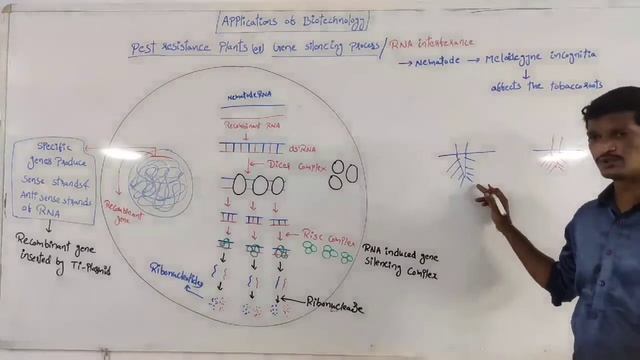 Applications of Biotechnology
Pest resistance Plants (or) Gene silencing Process / RNA interferance
→ Nematode → Meloidegyne incognitia
affects the tobacco roots
Nematode RNA
Recombinant RNA
dsRNA
Dicer Complex
Risc Complex
RNA induced gene
Silencing Complex
Ribonucleotides
Ribonuclease
Recombinant
gene
Specific
genes produce
Sense strands &
Anti sense strands
of RNA
Recombinant gene
inserted by Ti-Plasmid